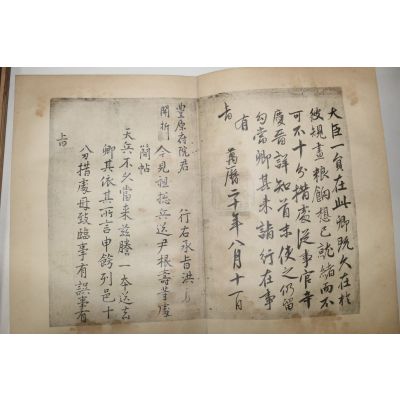 大臣一員在此卿既久在於
彼規畫粮餉想已就緖而不
可不十分措處從事官辛
慶晉詳知首末使之仍留
句當卿其来詣行在事
有
旨
萬曆二十年八月十一日
豊原府院君 行右承旨洪
開折 今見祖總兵送尹根壽等處
簡帖
天兵不久當来茲謄一本送去
卿其依其所言申飭列邑十
分措處毋致臨事有誤事有
旨